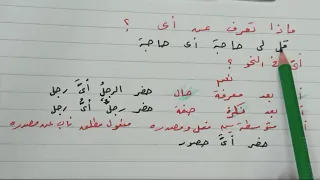 ماذا تعرف عن أى ؟
قل لى حاجة أى حاجة
أى النحو ؟
نعم
بعد معرفة حال حضر الرجلُ أىَّ رجل
بعد نكرة صفة حضر رجلٌ أىُّ رجل
متوسطة بين فعل ومصدره مفعول مطلق نائب عن مصدره
حضر أىَّ حضور